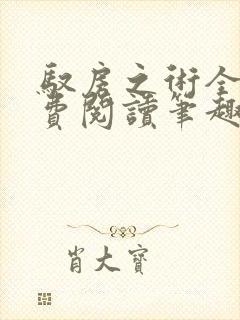 馭房之術全
費閱讀筆趣
肖大寶